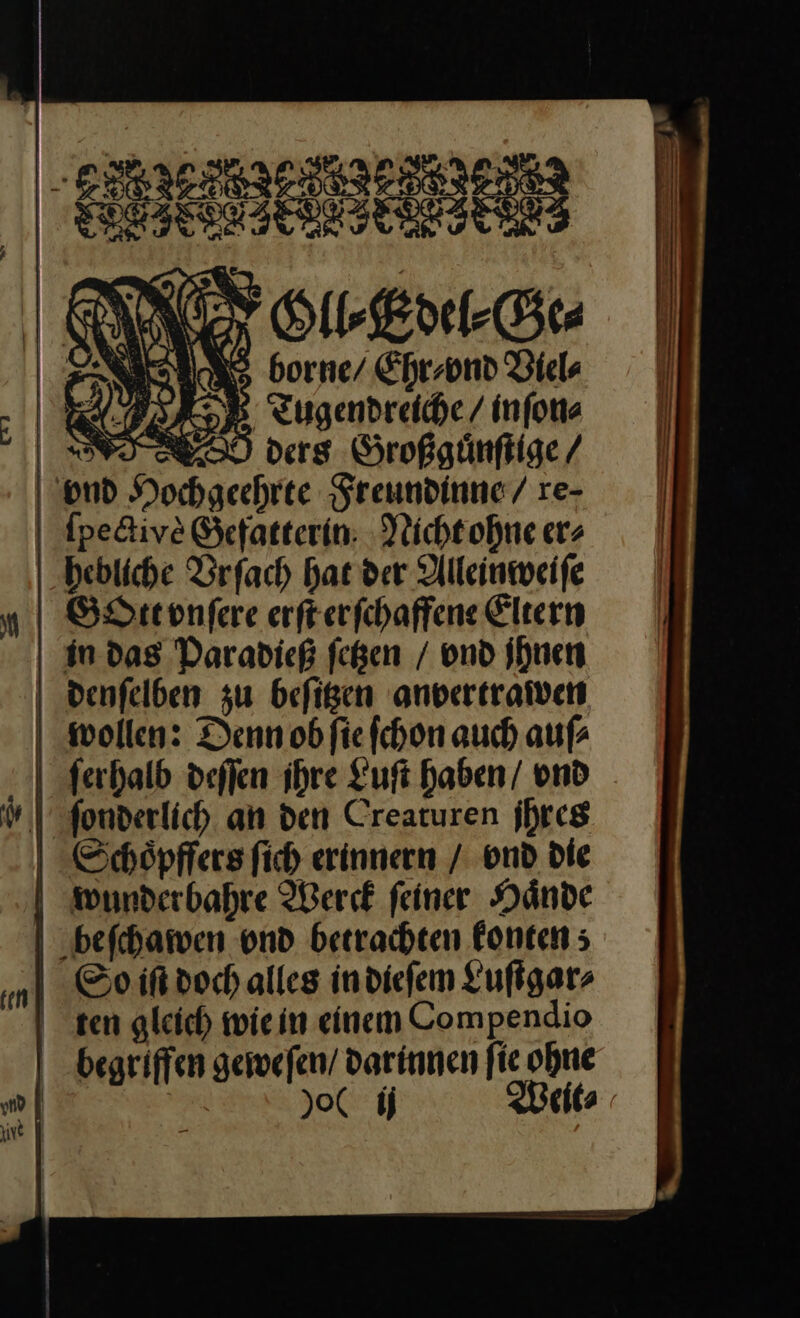 WOll⸗Edel⸗Ge⸗
borne/ Ehr⸗vnd Viel⸗
Tugendreiche / inſon⸗
ders Großguͤnſtige /
vnd Hochgeehrte Freundinne / re-
ſpectivè Gefatterin. Nicht ohne er⸗
hebliche Vrſach hat der Alleinweiſe
GOtt vnſere erſt erſchaffene Eltern
in das Paradieß ſetzen / vnd jhnen
denſelben zu beſitzen anvertrawen
wollen: Denn ob ſie ſchon auch auſ⸗
ſerhalb deſſen jhre Luſt haben/ vnd
ſonderlich an den Creaturen jhres
Schoͤpffers ſich erinnern / vnd die
wunderbahre Werck ſeiner Haͤnde
beſchawen vnd betrachten konten;
So iſt doch alles in dieſem Luſtgar⸗
ten gleich wie in einem Compendio
begriffen geweſen/ darinnen ſie ohne
)o( ij Weit⸗